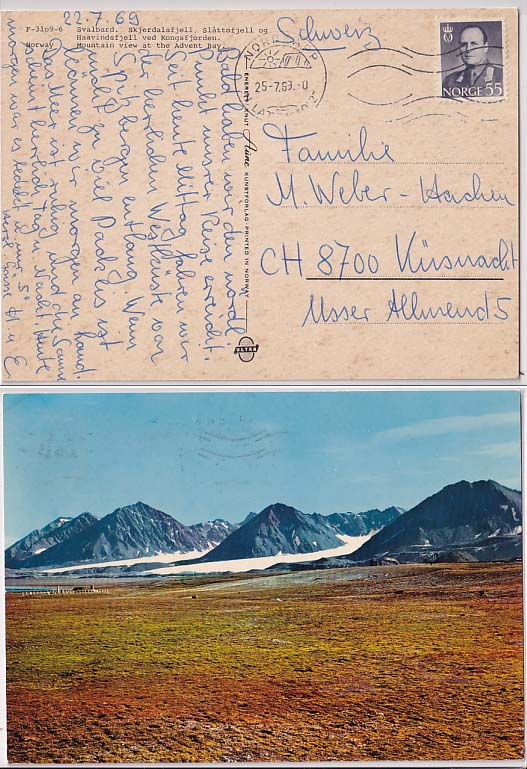 F-3109-6 Svalbard. Skjerdalsfjell, Slåttofjell og
Haavindsfjell ved Kongsfjorden.
Norway Mountain view at the Advent Bay.
22.7.69
Bald haben wir den nördl.
Punkt unserer Reise erreicht.
Seit heute Mittag fahren wir
der herrlichen Westküste von
Spitzbergen entlang. Wenn
nicht zu viel Packeis ist
können wir morgen an Land.
Das Meer ist ruhig und die Sonne
scheint herrlich Tag u. Nacht. Heute
morgen war es bedeckt u. nur 5°
H u E.
ENERETT: KNUT Aune KUNSTFORLAG - PRINTED IN NORWAY
ULTRA
25-7.69.-0
NORGE 55
Schweiz
Familie
M. Weber-Hachen
CH 8700 Küsnacht
Usser Allmend 5